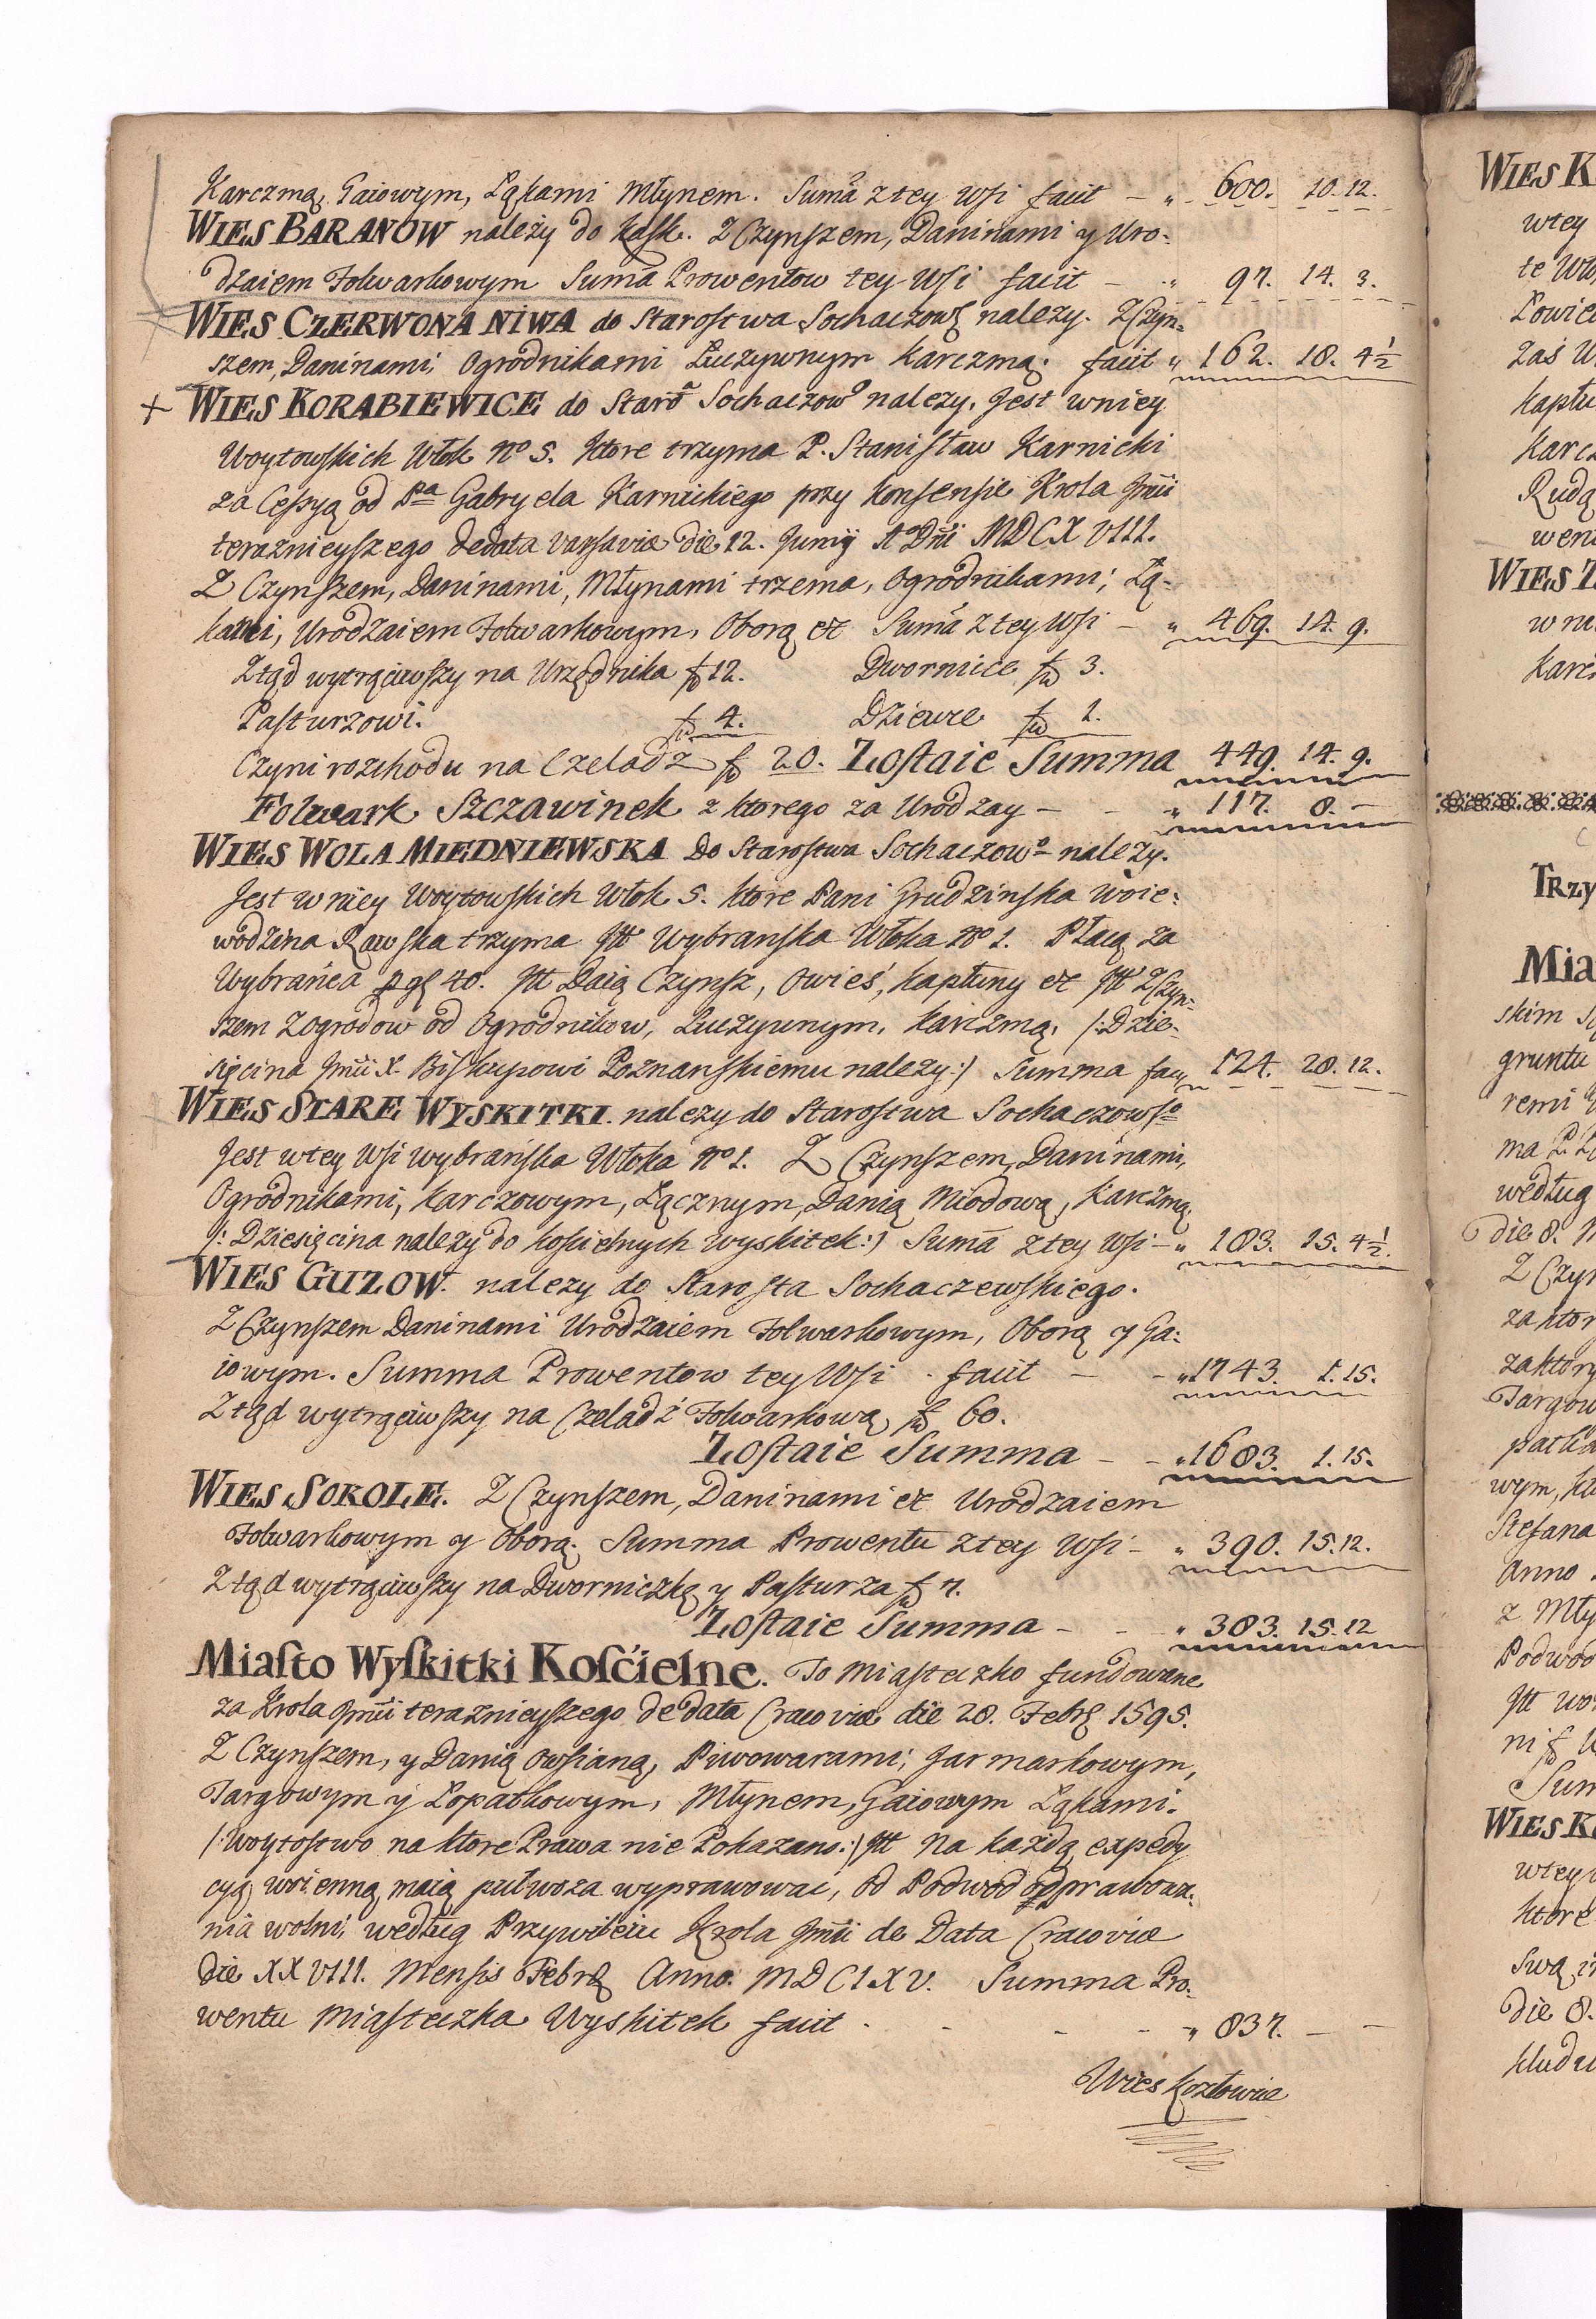 Karczmą, Gaiowym, Łąkami Młynem. Suma z tey Wsi facit — „ 600. 10. 12.
WIES BARANOW należy do Kasst. Z Czynszem, Daninami y Uro-
dzaiem Folwarkowym Suma Prowentow tey Wsi facit — „ 97. 14. 3.
WIES CZERWONA NIWA do Starostwa Sochaczow należy. Z Czyn-
szem, Daninami, Ogrodnikami Łuczywnym Karczmą. facit „ 162. 18. 4½
+ WIES KORABIEWICE do Staro Sochaczowo należy. Jest w niey
Woytowskich Włok No 5. Ktore trzyma P. Stanisław Karnicki
za Cessyą od Pa Gabryela Karnickiego przy Konsensie Krola Jmci
teraznieyszego de data Varsaviæ die 12. Junij Ao Dni MDCXVIII.
Z Czynszem, Daninami, Młynami trzema, Ogrodnikami, Łą-
kami, Urodzaiem Folwarkowym, Oborą et Suma z tey Wsi — „ 469. 14. 9.
Ztąd wytrąciwszy na Urzędnika f 12. Dwornice f 3.
Pasturzowi. f 4. Dziewce f 1.
Czyni rozchodu na Czeladz f 20. Zostaie Summa 449. 14. 9.
Folwark Szczawinek z ktorego za Urodzay — — „ 117. 8. —
WIES WOLA MIEDNIEWSKA Do Starostwa Sochaczowo należy.
Jest w niey Woytowskich Włok 5. Ktore Pani Grudzinska Woie-
wodzina Rawska trzyma Itt Wybranska Włoka No 1. Płacą za
Wybrańca p g 40. Itt Daią Czynsz, Owies, Kapłuny et Itt Z Czyn-
szem Z Ogrodow od Ogrodnikow, Łuczywnym, Karczmą, /: Dzie-
sięcina Jmci X. Biskupowi Poznanskiemu należy :/ Summa fac 124. 28. 12.
WIES STARE WYSKITKI. należy do Starostwa Sochaczowso
Jest w tey Wsi wybrańska Włoka No 1. Z Czynszem, Daninami,
Ogrodnikami, Karczowym, Łącznym, Danią Miodową, Karczmą.
/: Dziesięcina należy do Kościelnych Wyskitek :/ Suma z tey Wsi — „ 183. 15. 4½.
WIES GUZOW. należy do Starosta Sochaczewskiego.
Z Czynszem Daninami Urodzaiem Folwarkowym, Oborą y Ga-
iowym. Summa Prowentow tey Wsi facit — — „ 1743. 1. 15.
Ztąd wytrąciwszy na Czeladź Folwarkową f 60.
Zostaie Summa — — „ 1683. 1. 15.
WIES SOKOLE. Z Czynszem, Daninami et Urodzaiem
Folwarkowym y Oborą. Summa Prowentu z tey Wsi — „ 390. 15. 12.
Ztąd wytrąciwszy na Dworniczkę y Pasturza f 7.
Zostaie Summa — — „ 383. 15. 12
Miasto Wyskitki Kościelne. To Miasteczko fundowane
za Krola Jmci teraznieyszego de data Cracoviæ die 28. Febr 1595.
Z Czynszem, y Danią Owsianą, Piwowarami, Jarmarkowym,
Targowym y Łopatkowym, Młynem, Gaiowym Łąkami.
/: Woytostwo na ktore Prawa nie Pokazano :/ Itt Na każdą expedy
cyą woienną maią pułwoza wyprawować, od Podwod odprawowa-
nia wolni, według Przywileiu Krola Jmci de Data Cracoviæ
die XXVIII. Mensis Febr Anno. MDCLXV. Summa Pro-
wentu Miasteczka Wyskitek facit — — „ 837. — —
Wies Kozłowice
WIES K
wtey
te Wło
Łowie
zaś W
Kapłu
Karcz
Rudą
wen
WIES
w ni
Karc
TRzy
Mia
skim
gruntu
remi
ma P.
według
die 8.
Z Czyn
za ktor
za ktory
Targow
patka
wym,
Stefana
Anno
z Mły
Podwod
Itt wo
ni f
Sum
WIES K
wtey
ktore
Swą
die 8.
kludu